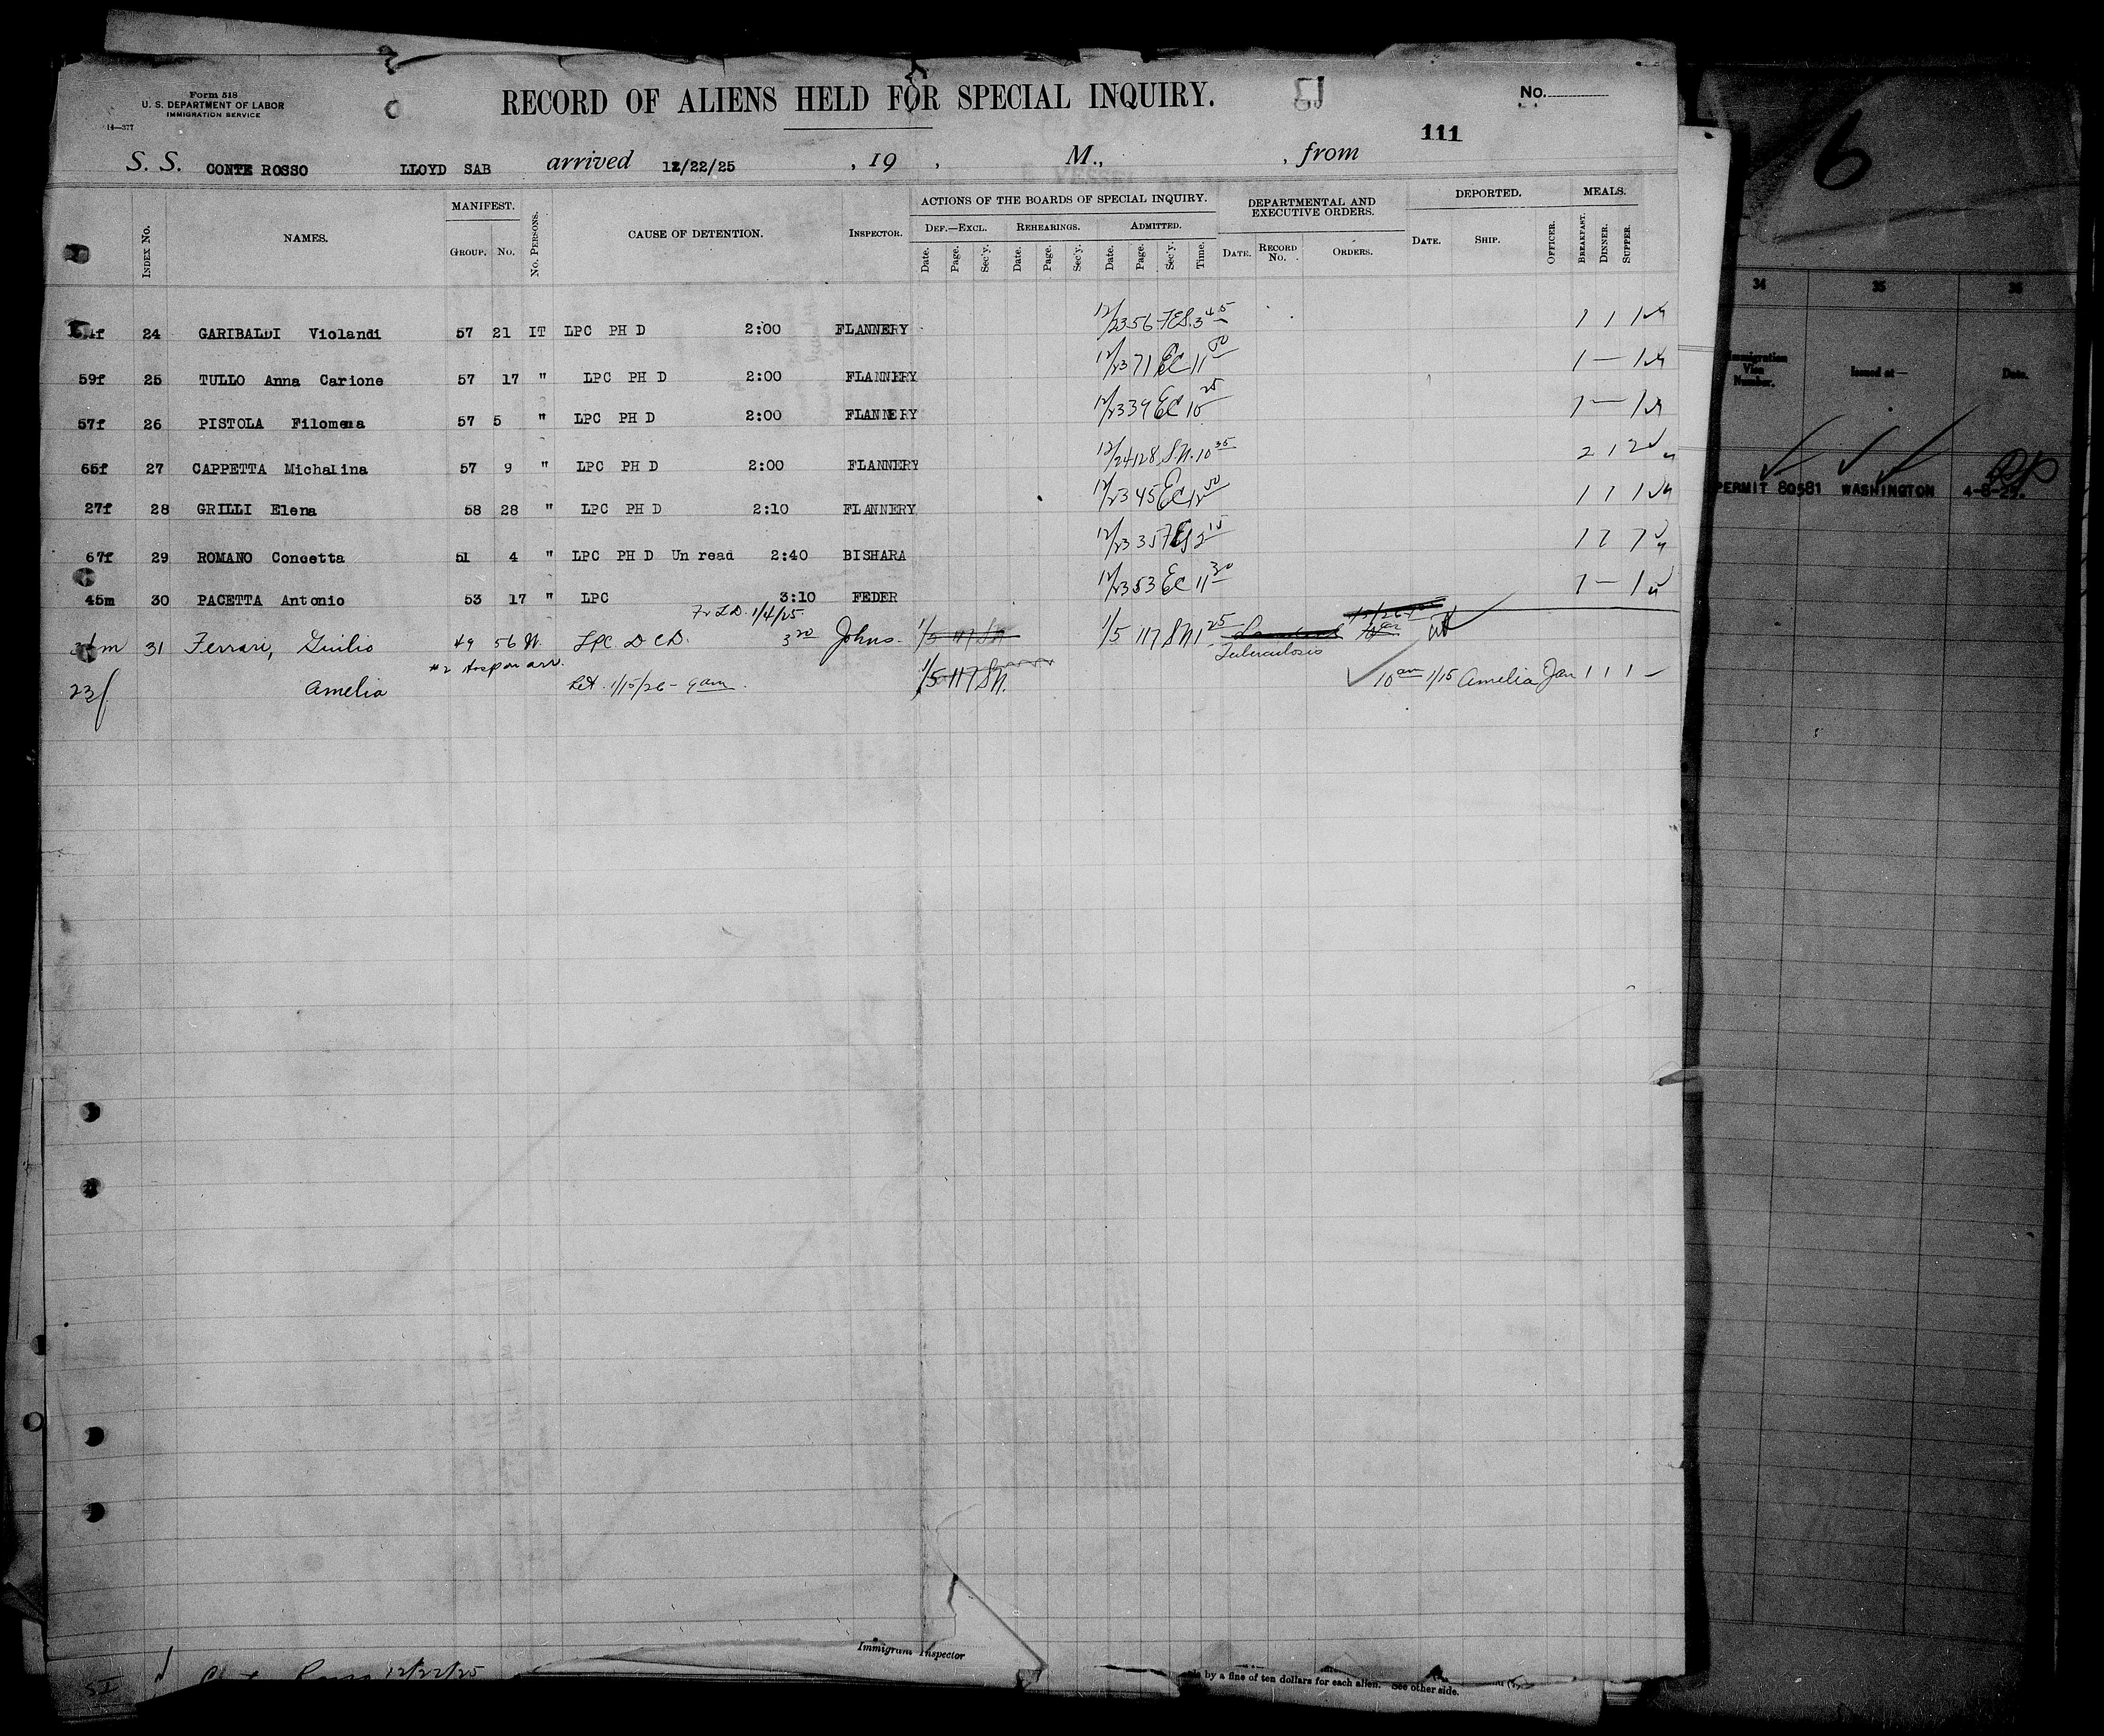 Form 518
U. S. DEPARTMENT OF LABOR
IMMIGRATION SERVICE
14—377
RECORD OF ALIENS HELD FOR SPECIAL INQUIRY.
No.
111
S. S. CONTE ROSSO LLOYD SAB arrived 12/22/25 , 19 , M., , from
INDEX No. NAMES. MANIFEST. GROUP. No. No. PERSONS. CAUSE OF DETENTION. INSPECTOR. ACTIONS OF THE BOARDS OF SPECIAL INQUIRY. DEF.—EXCL. REHEARINGS. ADMITTED. DEPARTMENTAL AND EXECUTIVE ORDERS. DEPORTED. MEALS.
Date. Page. Sec'y. Date. Page. Sec'y. Date. Page. Sec'y. Time. DATE. RECORD No. ORDERS. DATE. SHIP. OFFICER. BREAKFAST. DINNER. SUPPER.
24 GARIBALDI Violandi 57 21 IT LPC PH D 2:00 FLANNERY 12/23 56 FES 3 45 1 1 1
59f 25 TULLO Anna Carione 57 17 " LPC PH D 2:00 FLANNERY 12/23 71 EC 11 50 1 — 1
57f 26 PISTOLA Filomena 57 5 " LPC PH D 2:00 FLANNERY 12/23 39 EC 10 25 1 — 1
65f 27 CAPPETTA Michalina 57 9 " LPC PH D 2:00 FLANNERY 12/24 128 S.N. 10 35 2 1 2
27f 28 GRILLI Elena 58 28 " LPC PH D 2:10 FLANNERY 12/23 45 EC 12 50 1 1 1
67f 29 ROMANO Concetta 51 4 " LPC PH D Un read 2:40 BISHARA 12/23 357 2 15 1 1 1
45m 30 PACETTA Antonio 53 17 " LPC 3:10 FEDER 12/23 53 EC 11 30 1 — 1
1/4/25
m 31 Ferrari, Giulio 49 56 LPC D C D. 3 20 Johns. 1/5 117 SN 1/5 117 SN 1 25
Tuberculosis
#2 Hosp on arr.
23f Amelia 1/15/26 - 9 am. 1/5 117 SN. 10 am 1/15 Amelia Jan 1 1 1 —
Immigrant Inspector
12/22/25
SI
by a fine of ten dollars for each alien. See other side.
6
34 35 36
Immigration Visa Number. Issued at— Date.
PERMIT 80581 WASHINGTON 4-8-25.